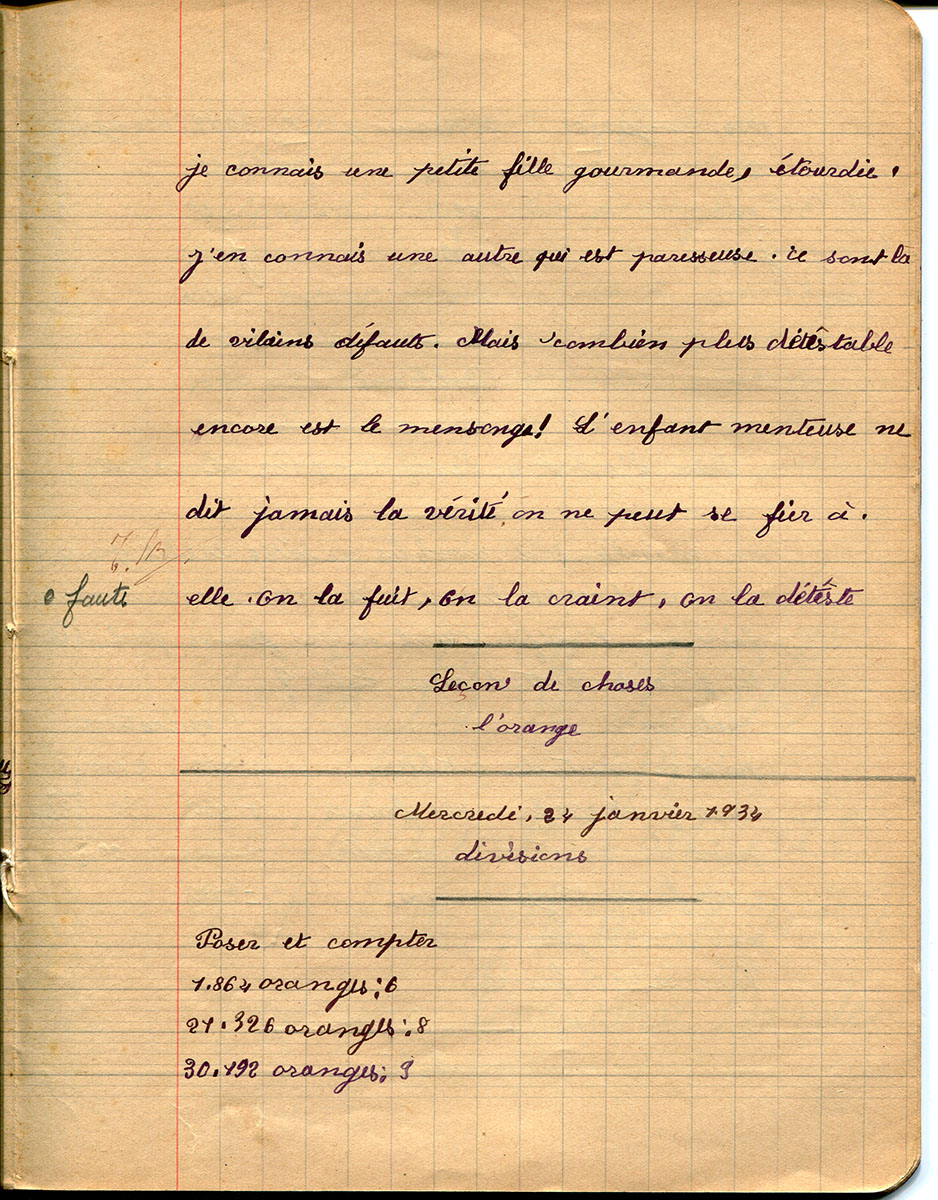 je connais une petite fille gourmande, étourdie.
j'en connais une autre qui est paresseuse. ce sont là
de vilains défauts. Mais combien plus détéstable
encore est le mensonge! L'enfant menteuse ne
dit jamais la vérité, on ne peut se fier à.
T. B.
0 faute
elle. on la fuit, on la craint, on la détéste
Leçon de choses
l'orange
Mercredi, 24 janvier 1934
divisions
Poser et compter
1.864 oranges : 6
21.326 oranges : 8
30.192 oranges : 9